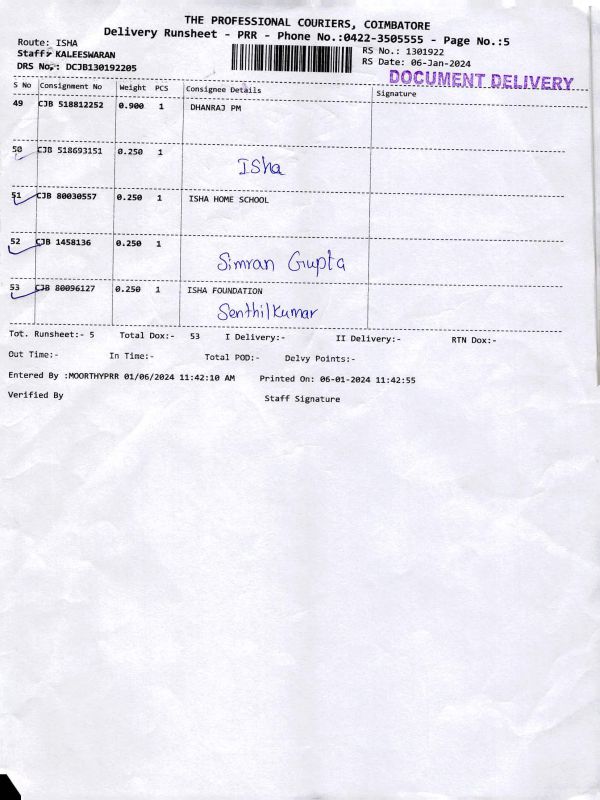 THE PROFESSIONAL COURIERS, COIMBATORE
Delivery Runsheet - PRR - Phone No.:0422-3505555 - Page No.:5
Route: ISHA
Staff: KALEESWARAN
RS No.: 1301922
DRS No.: DCJB130192205
RS Date: 06-Jan-2024
DOCUMENT DELIVERY
S No Consignment No Weight PCS Consignee Details Signature
49 CJB 518812252 0.900 1 DHANRAJ PM
50 CJB 518693151 0.250 1
Isha
51 CJB 80030557 0.250 1 ISHA HOME SCHOOL
52 CJB 1458136 0.250 1
Simran Gupta
53 CJB 80096127 0.250 1 ISHA FOUNDATION
Senthilkumar
Tot. Runsheet:- 5 Total Dox:- 53 I Delivery:- II Delivery:- RTN Dox:-
Out Time:- In Time:- Total POD:- Delvy Points:-
Entered By :MOORTHYPRR 01/06/2024 11:42:10 AM Printed On: 06-01-2024 11:42:55
Verified By Staff Signature